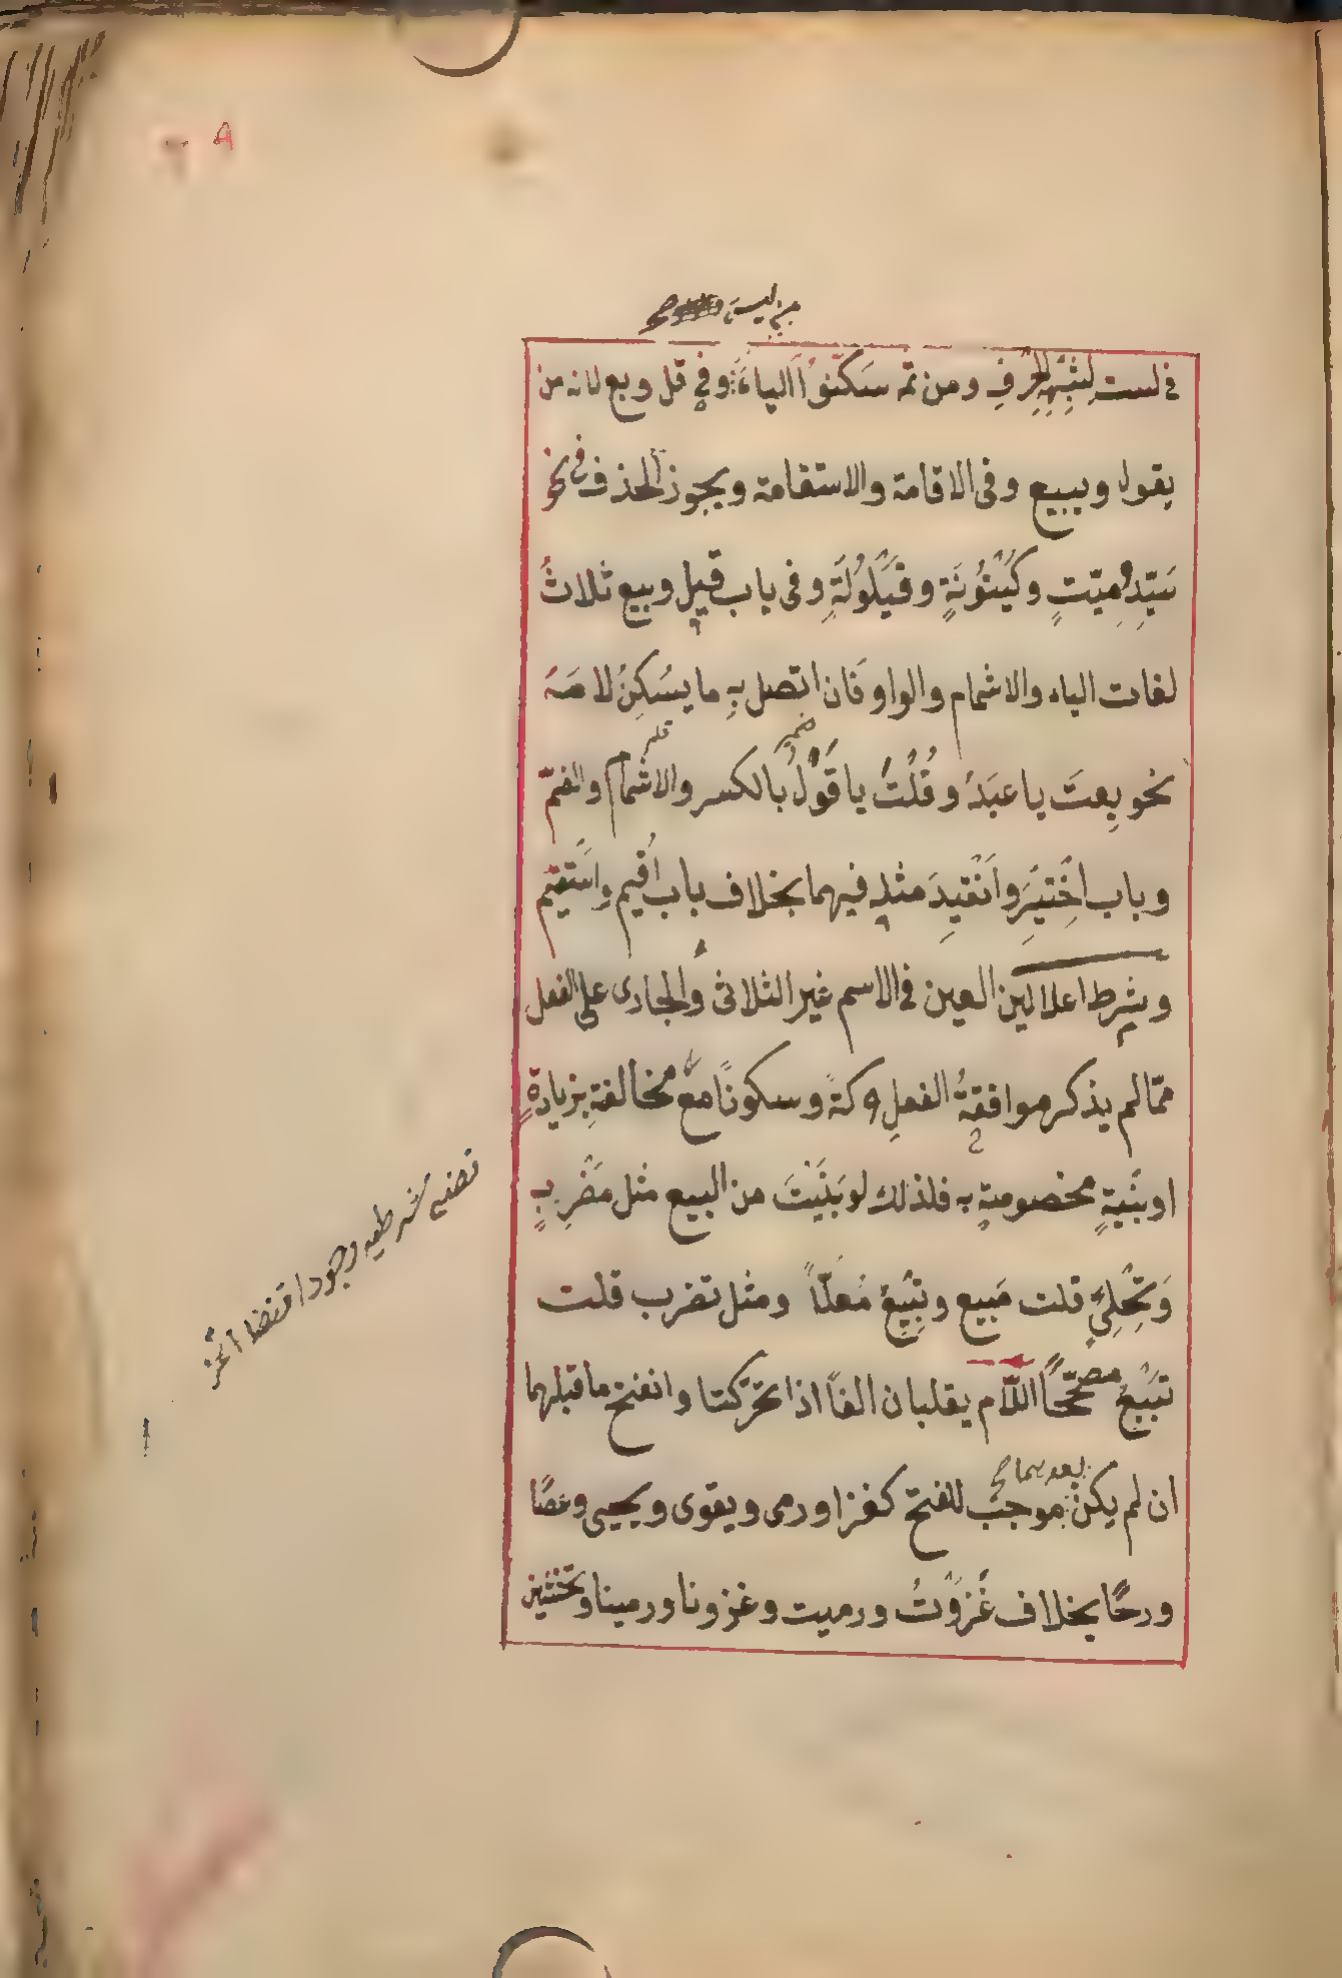 من ليس صح
في لست لِشِبْهِ الحرفِ ومن ثم سَكَّنوا الياءَ وفي قل وبع لانه من
يقول ويبيع وفي الاقامة والاستقامة ويجوز الحذف في نحو
سَيّدٍ ومَيّتٍ وكَيَّنُونَةٍ وقَيَّلُولَةٍ وفي باب قيل وبيع ثلاثُ
لغات الياء والاشمام والواو فان اتصل بهِ ما يُسكِنُ لامَهُ
نحو بِعتَ يا عبدُ وقُلْتُ يا قَوْلُ بالكسر والاشمام والضمّ
وباب اخْتِيرَ وانْقِيدَ مثله فيهما بخلاف باب اُقيم واُستقيم
وشرط اعلال العين في الاسم غير الثلاثى والجارى على الفعل
ممّا لم يذكر موافقةُ الفعلِ حركةً وسكونًا معَ مخالفةِ بزيادةٍ
او بنْيَةٍ مخصوصةٍ به فلذلك لو بَنَيْتَ من البيع مثل مَضْرِبٍ
وتِحْلِئٍ قلت مَبيع وتِبِيعٌ مُعَلّاً ومثل تضرب قلت
تَبْيِعُ مصحّحًا اللّام يقلبان الفًا اذا تحرّكتا وانفتح ما قبلهما
بعدهما صح
ان لم يكن موجب للفتح كغزا ورمى ويقوى ويحيى وعصًا
ورحًا بخلاف غَزَوْتُ ورميت وغزونا ورمينا وتخشين